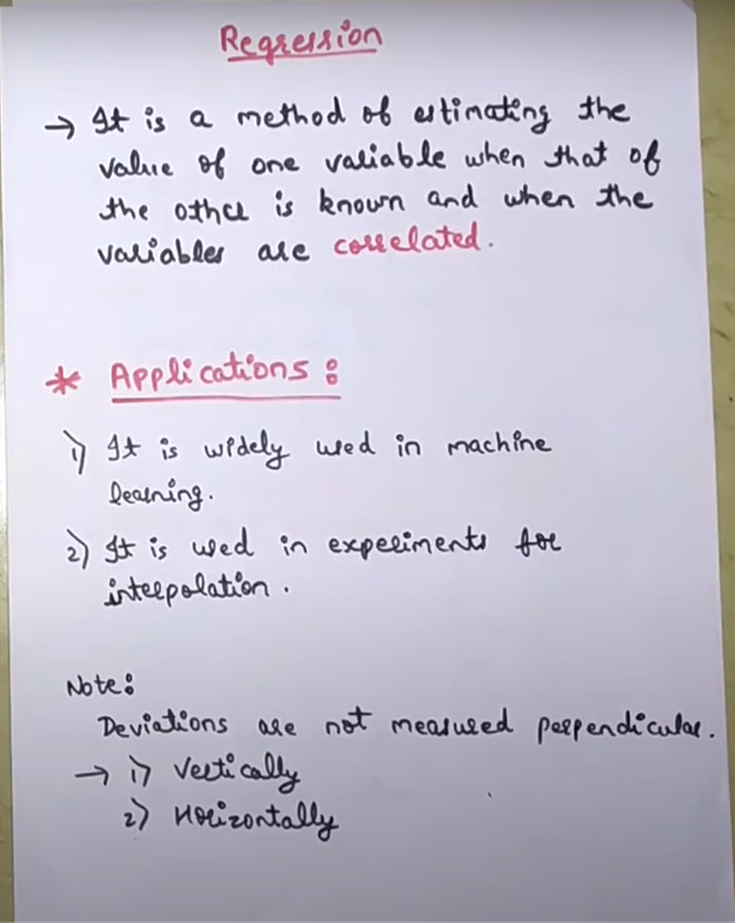 Regression
→ It is a method of estimating the
value of one variable when that of
the other is known and when the
variables are correlated.
* Applications :
1) It is widely used in machine
learning.
2) It is used in experiments for
interpolation.
Note:
Deviations are not measured perpendicular.
→ 1) Vertically
2) Horizontally